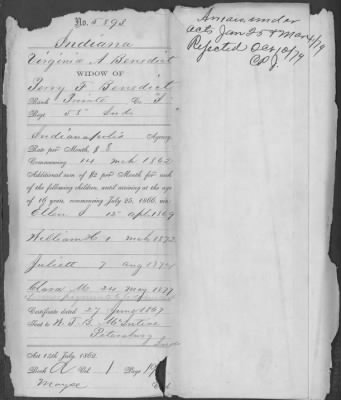 No. 5898
Indiana
Virginia A Benedict
WIDOW OF
Perry F Benedict
Rank Private Co "I"
Regt 58" Inda
Indianapolis Agency
Rate per Month, $8
Commencing 14 mch 1862
Additional sum of $2 per Month for each
of the following children, until arriving at the age
of 16 years, commencing July 25, 1866, viz:
Ellen 15 apl 1869
William H 1 mch 1872
Juliett 7 aug 1874
Clara M. 24 may 1877
Certificate dated 27 June 1867
Sent to W. F. B. McIntire
Petersburg
Ind
Act 14th July, 1862.
Book A Vol. 1 Page
Mayse Clerk
Arrears under
acts Jan 25 & Mar 3/79
Rejected Oct 10/79